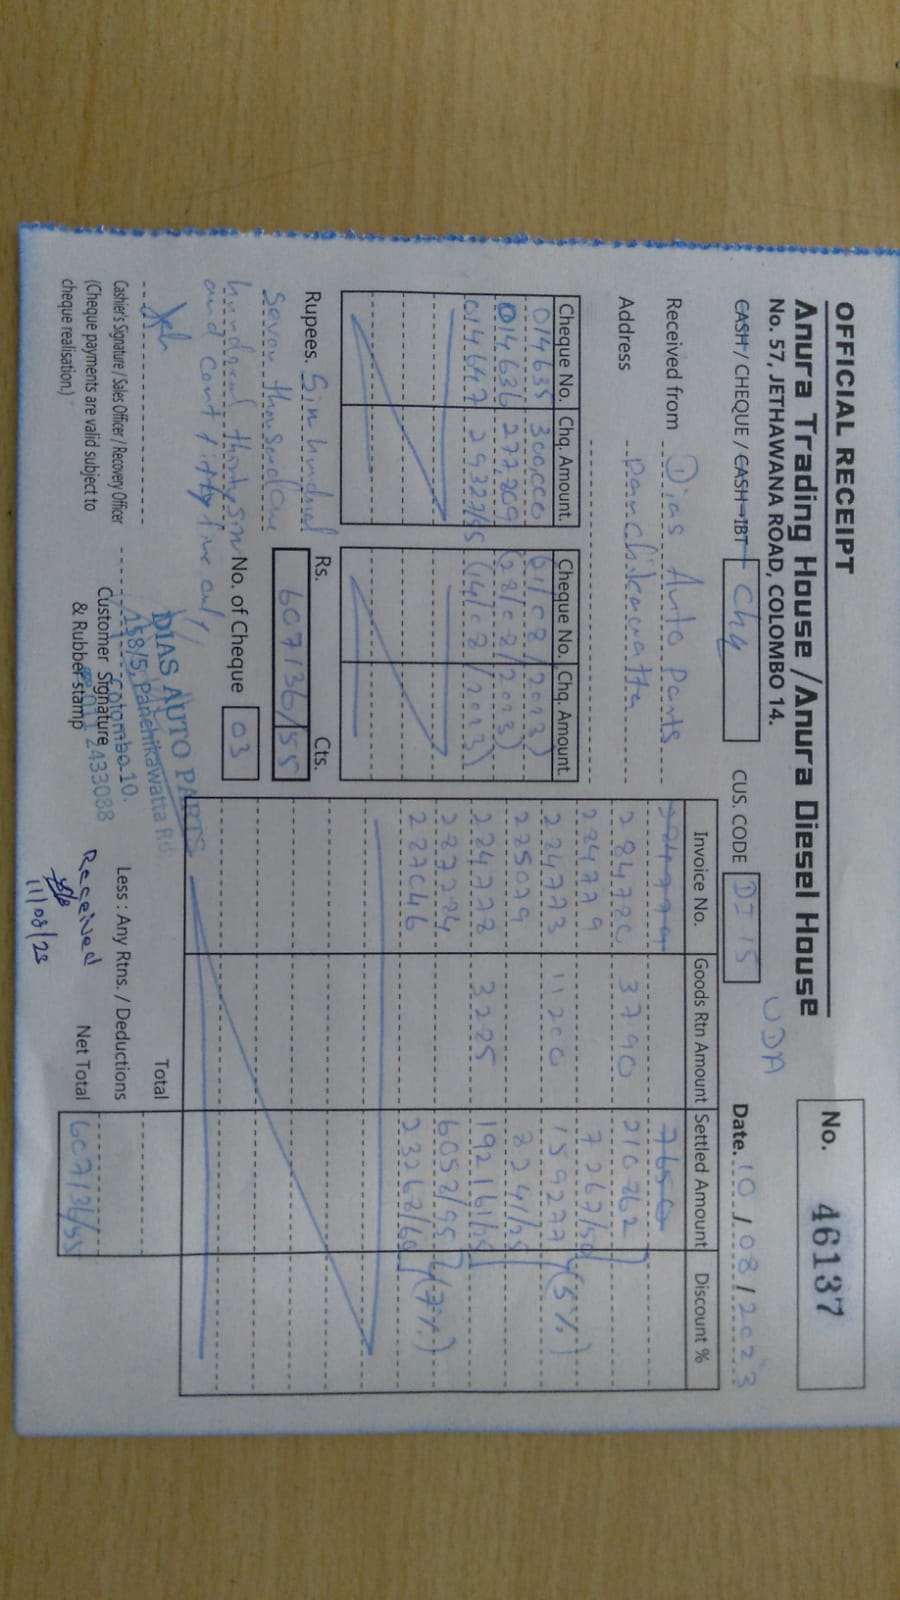 OFFICIAL RECEIPT
No. 46137
Anura Trading House / Anura Diesel House
No. 57, JETHAWANA ROAD, COLOMBO 14.
UDA
CASH / CHEQUE / CASH-IBT Chq CUS. CODE DI 15 Date. 10 / 08 / 2023
Received from Dias Auto parts
Address Panchikawatta
Cheque No. Chq. Amount. Cheque No. Chq. Amount.
014635 300,000
014636 277,809
014647 29327/55 (14/08/2023)
Rupees. Six hundred
seven thousand one
hundred thirty six
and cent fifty five only
Rs. Cts.
607136/55
No. of Cheque 03
Invoice No. Goods Rtn Amount Settled Amount Discount %
224779 7650
224780 3790 210862
224779 7267/50
224773 11200 159277 (5%)
225079 8241/25
224778 3225 192161/25
227224 6058/95 (7%)
227046 23268/60
Total
Less : Any Rtns. / Deductions
Net Total 607136/55
Cashier's Signature / Sales Officer / Recovery Officer
(Cheque payments are valid subject to
cheque realisation.)
DIAS AUTO PARTS
458/5, Panchikawatta Rd,
Colombo-10.
2433088
Customer Signature
& Rubber stamp
Received
11/08/23